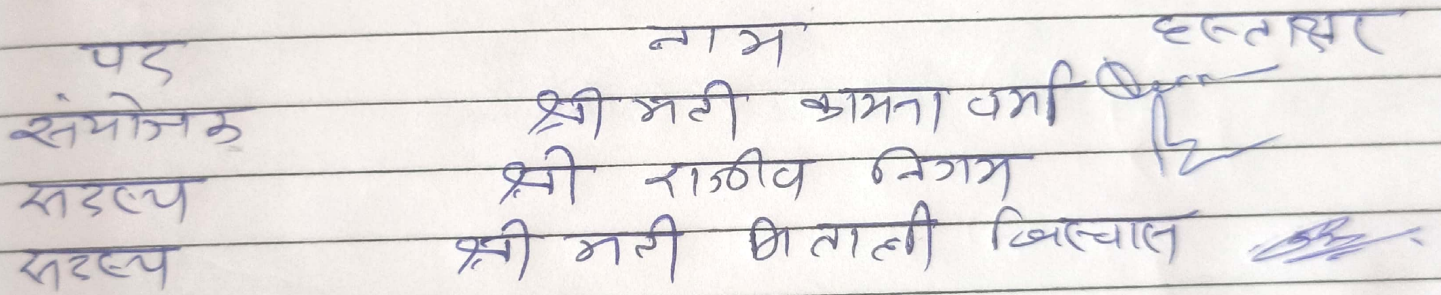 पद नाम हस्ताक्षर
संयोजक श्री मती कामना वर्मा
सदस्य श्री राजीव निगम
सदस्य श्री मती मिताली बिस्वास